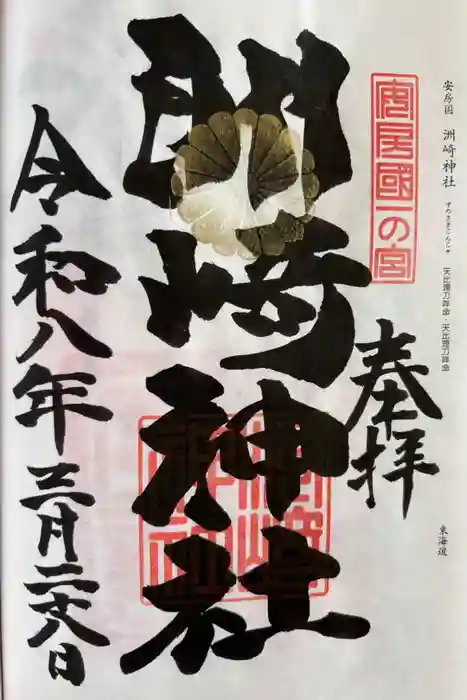 安房國 洲崎神社 すのさきじんじゃ 天比理刀咩命・天比理刀咩命
東海道
安房國一の宮
奉拝
洲崎神社
洲崎神社
令和八年三月二十八日